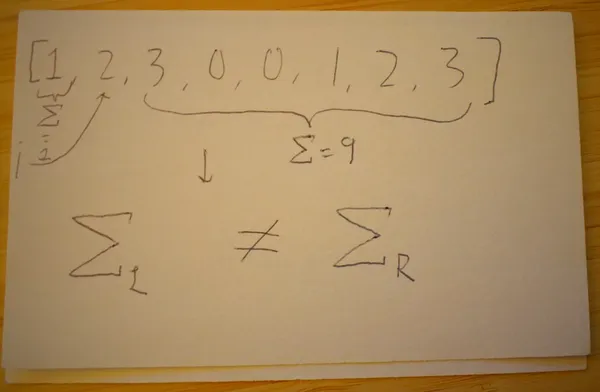 [1, 2, 3, 0, 0, 1, 2, 3]
i
Σ=1
Σ=9
↓
Σ_L ≠ Σ_R